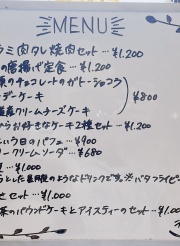 MENU
ラミ肉タレ焼肉セット…¥1.200
の唐揚げ定食…¥1.200
東のチョコレートのガトーショコラ
デーケーキ
クリームチーズケーキ
¥800
からお好きなケーキ2種セット…¥1.200
いう日のパフェ…¥900
リークリームソーダ…¥680
…¥1.000
としたのようなドリンクです。※バタフライピー
セット…¥1.000
茶のパウンドケーキとアイスティーのセット…¥1.00